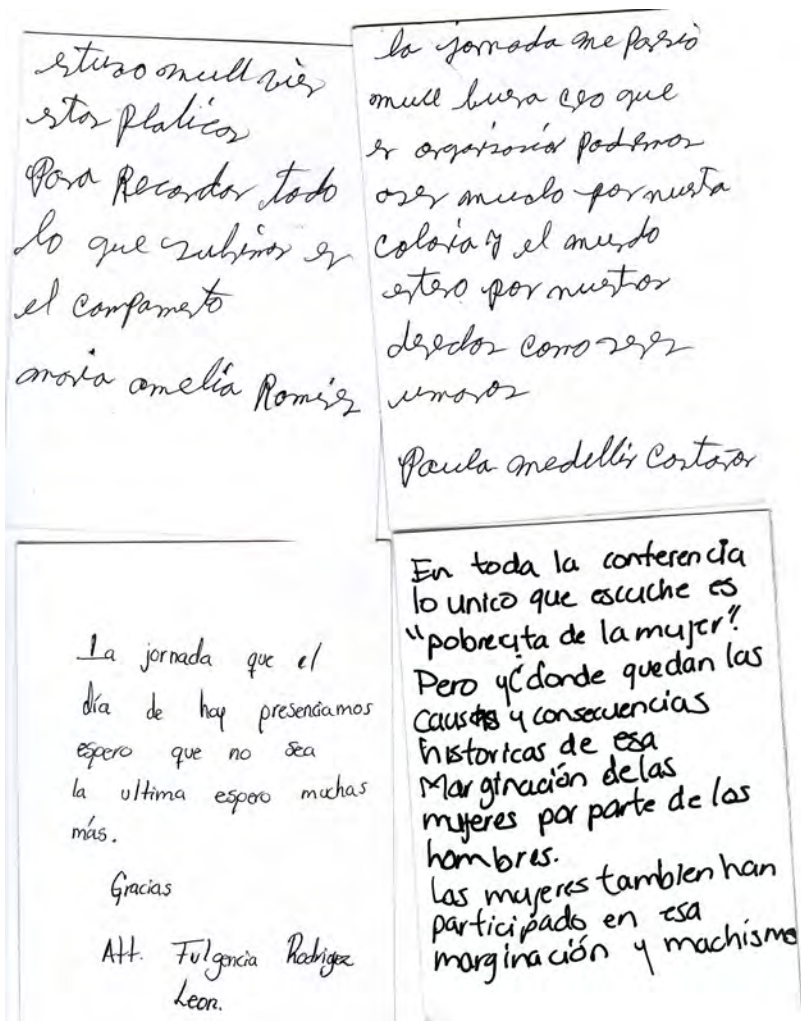 estuvo mull vien
estas platicas
Para Recordar todo
lo que subimos en
el campamento
maria amelia Ramirez
la jornada me parsio
mull buena creo que
organisacion podemos
aser mucho por nuesta
colonia y el mundo
entero por nuestros
derechos como seres
umanos
Paula medellin Castañon
La jornada que el
día de hoy presenciamos
espero que no sea
la ultima espero muchas
más.
Gracias
Att. Fulgencia Rodrigez
Leon.
En toda la conferencia
lo unico que escuche es
"pobrecita de la mujer".
Pero y ¿donde quedan las
causas y consecuencias
historicas de esa
Marginación de las
mujeres por parte de los
hombres.
Las mujeres tambien han
participado en esa
marginación y machismo